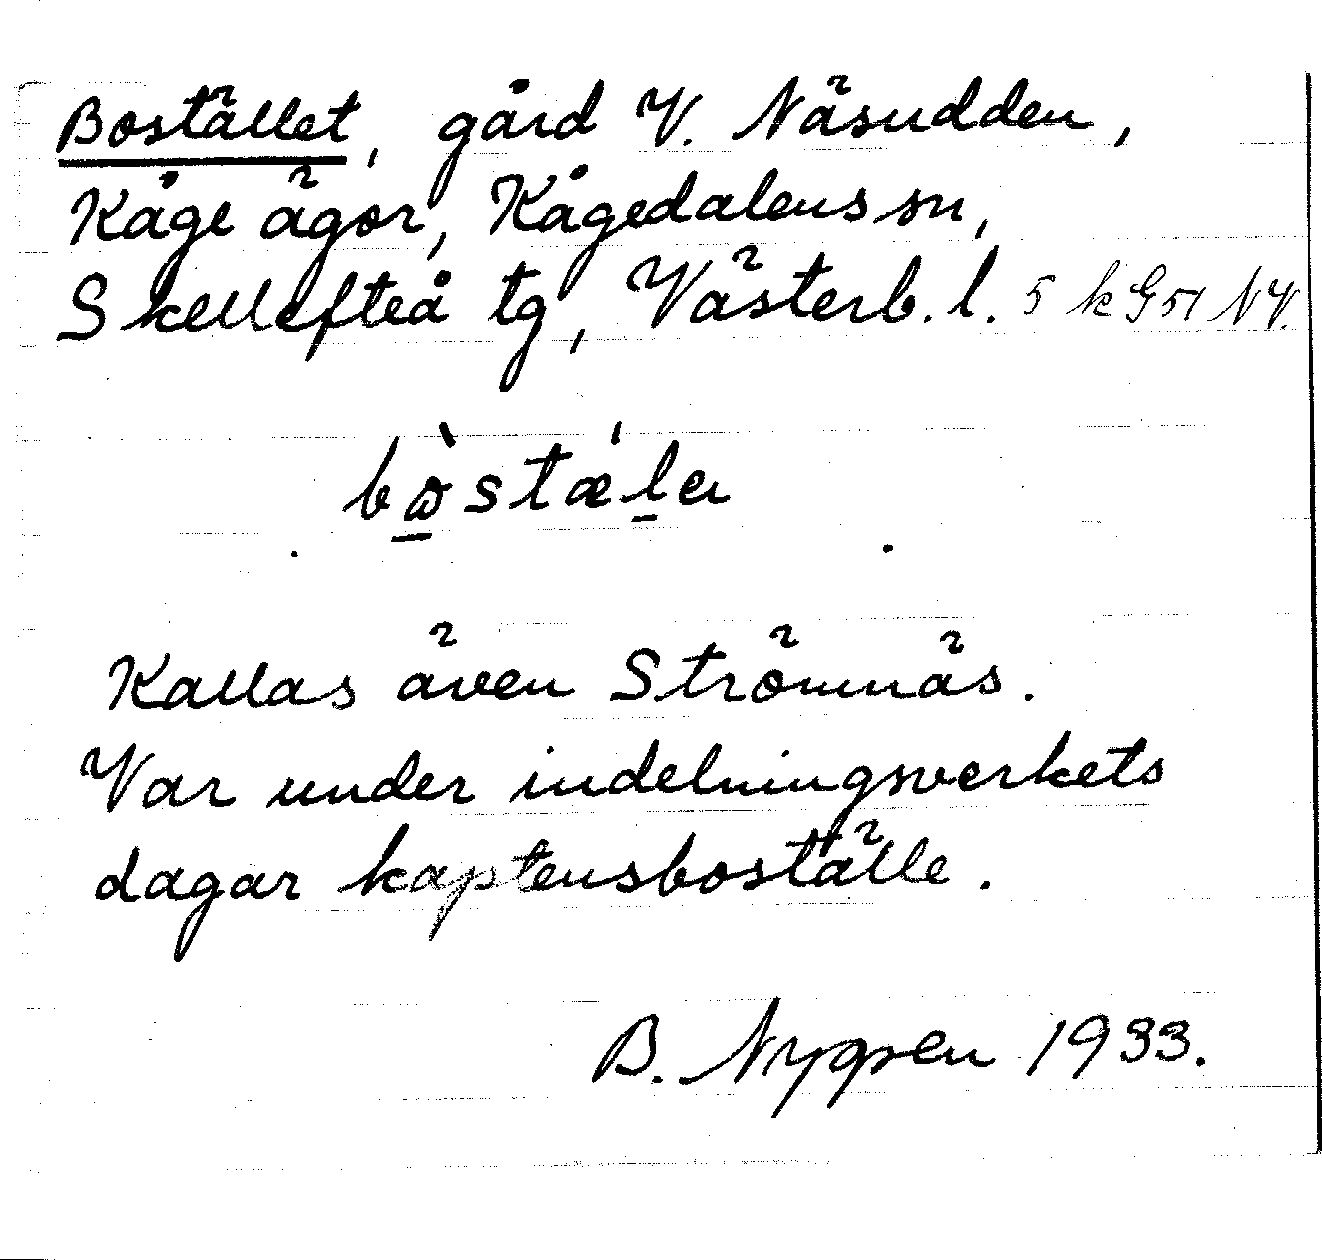 Bostället, gård V. Näsudden,
Kåge ägor, Kågedalens sn,
Skellefteå tg, Västerb. l. 5 k G 51 NV.
Kallas även Strömnäs.
Var under indelningsverkets
dagar kaptensboställe.
B. Nygren 1933.